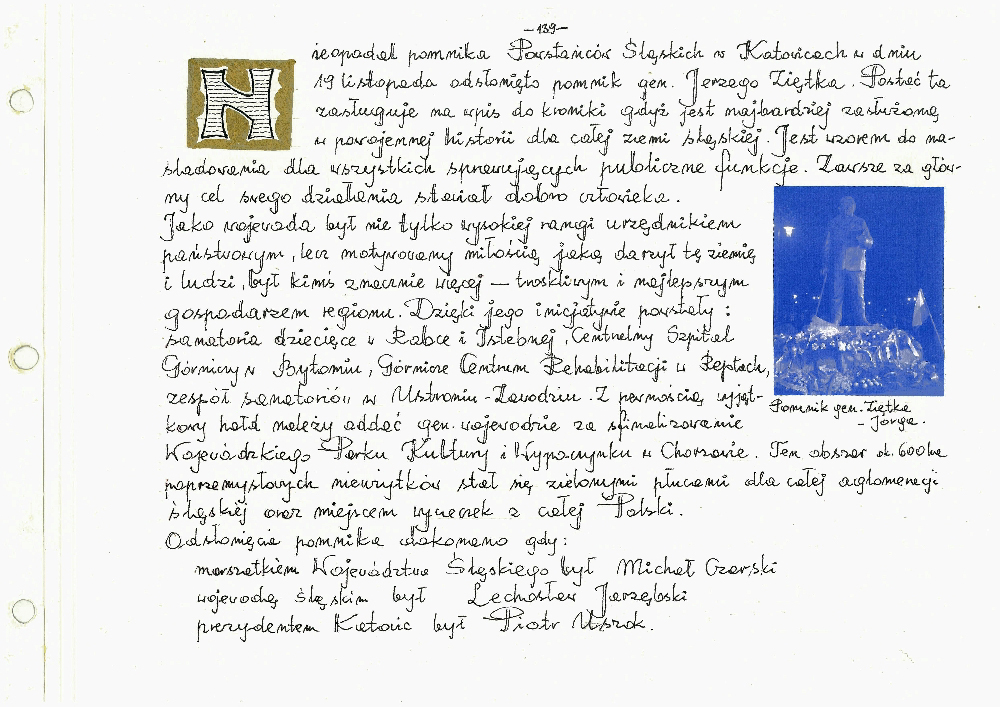 -139-
Nieopodal pomnika Powstańców Śląskich w Katowicach w dniu
19 listopada odsłonięto pomnik gen. Jerzego Ziętka. Postać ta
zasługuje na wpis do kroniki gdyż jest najbardziej zasłużoną
w powojennej historii dla całej ziemi śląskiej. Jest wzorem do na-
śladowania dla wszystkich sprawujących publiczne funkcje. Zawsze za głów-
ny cel swego działania stawiał dobro człowieka.
Jako wojewoda był nie tylko wysokiej rangi urzędnikiem
państwowym, lecz motywowany miłością jaką darzył tę ziemię
i ludzi, był kimś znacznie więcej – troskliwym i najlepszym
gospodarzem regionu. Dzięki jego inicjatywie powstały:
sanatoria dziecięce w Rabce i Istebnej, Centralny Szpital
Górniczy w Bytomiu, Górnicze Centrum Rehabilitacji w Reptach,
zespół sanatoriów w Ustroniu-Zawodziu. Z pewnością wyjąt-
kowy hołd należy oddać gen. wojewodzie za sfinalizowanie
Wojewódzkiego Parku Kultury i Wypoczynku w Chorzowie. Ten obszar ok. 600ha
poprzemysłowych nieużytków stał się zielonymi płucami dla całej aglomeracji
śląskiej oraz miejscem wycieczek z całej Polski.
Odsłonięcia pomnika dokonano gdy:
marszałkiem Województwa Śląskiego był Michał Czarski
wojewodą śląskim był Lechosław Jarzębski
prezydentem Katowic był Piotr Uszok.
Pomnik gen. Ziętka
- Jorga.